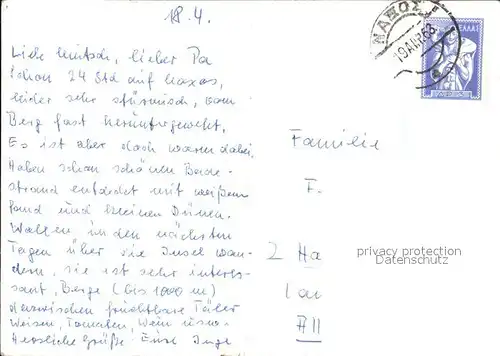 18.4.
ΝΑΞΟΣ
19 ΑΠΡ. 68
ΕΛΛΑΣ
Liebe Mutsch, lieber Pa
Schon 24 Std auf Naxos,
leider sehr stürmisch, vom
Berg fast heruntergeweht,
Es ist aber doch warm dabei.
Haben schon schönen Bade-
strand entdeckt mit weißem
Sand und kleinen Dünen.
Wollen in den nächsten
Tagen über die Insel wan-
dern, sie ist sehr interes-
sant, Berge (bis 1000 m)
dazwischen fruchtbare Täler
Weizen, Tomaten, Wein usw.
Herzliche Grüße Eure Inge
Familie
F.
2 Ha
privacy protection
Datenschutz